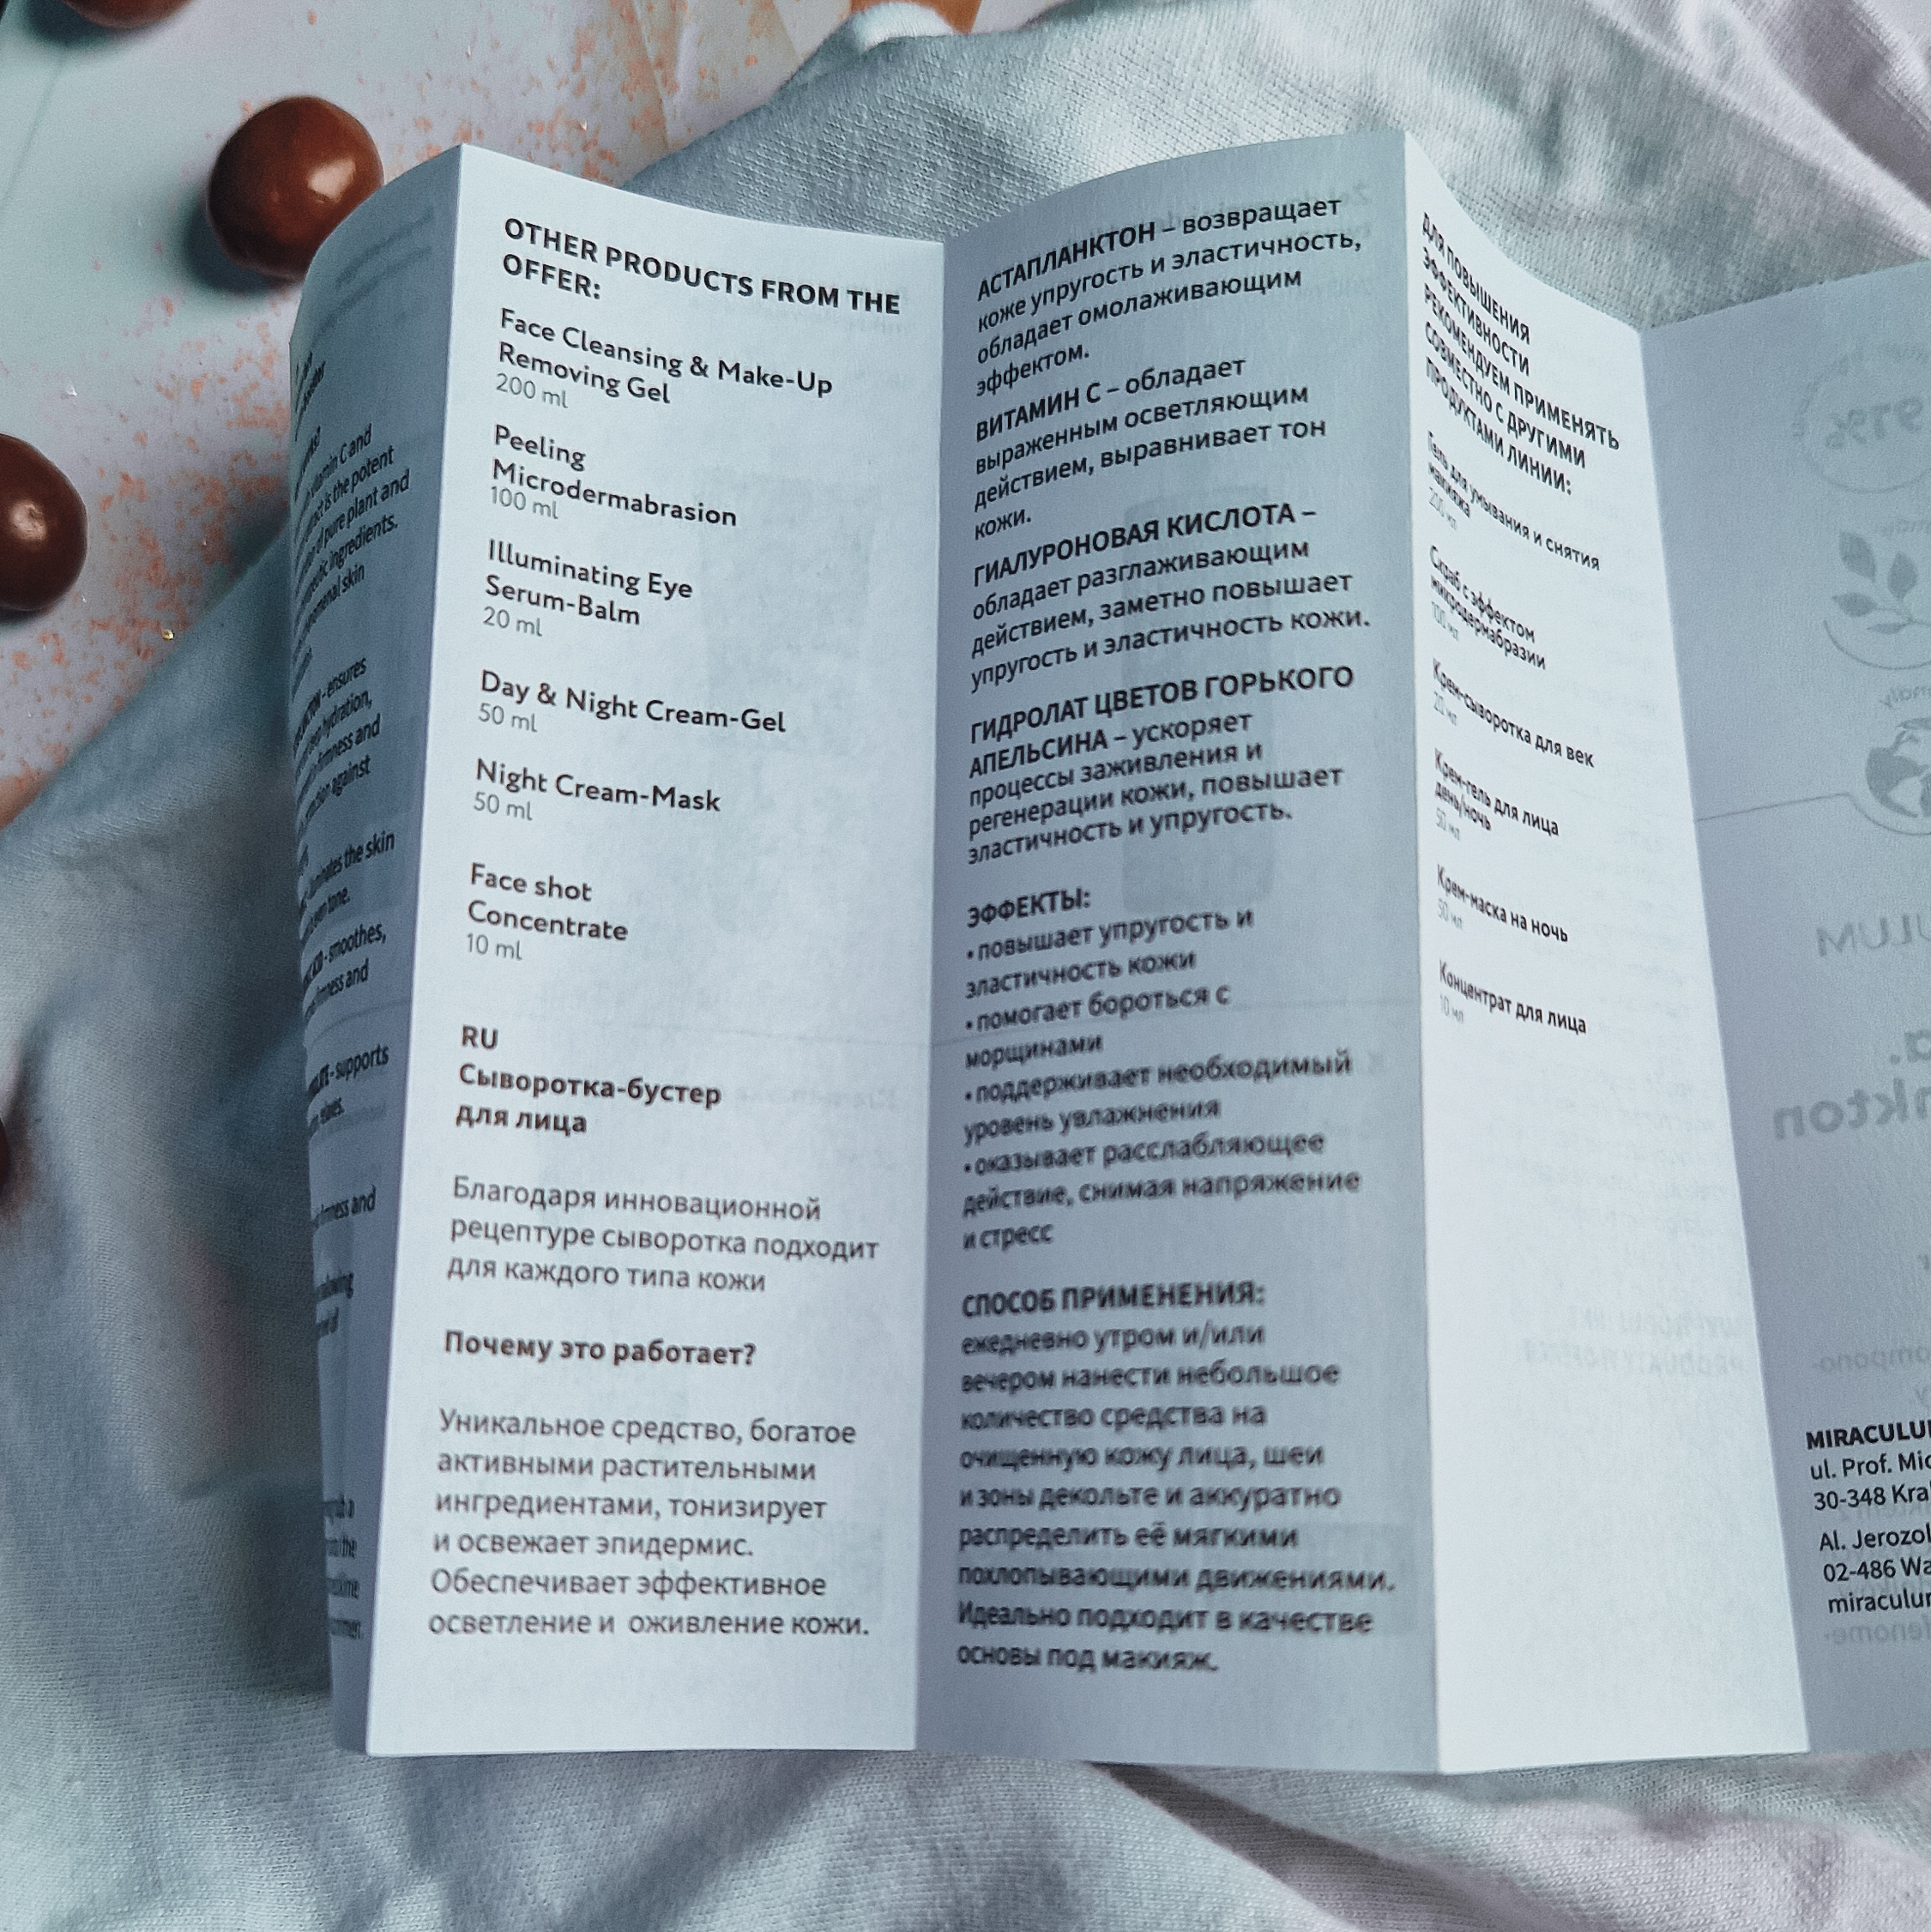 vitamin C and
is the potent
of pure plant and
ingredients.
skin
ensures
hydration,
firmness and
against
the skin
tone.
smoothes,
and
supports
and
OTHER PRODUCTS FROM THE
OFFER:
Face Cleansing & Make-Up
Removing Gel
200 ml
Peeling
Microdermabrasion
100 ml
Illuminating Eye
Serum-Balm
20 ml
Day & Night Cream-Gel
50 ml
Night Cream-Mask
50 ml
Face shot
Concentrate
10 ml
RU
Сыворотка-бустер
для лица
Благодаря инновационной
рецептуре сыворотка подходит
для каждого типа кожи
Почему это работает?
Уникальное средство, богатое
активными растительными
ингредиентами, тонизирует
и освежает эпидермис.
Обеспечивает эффективное
осветление и оживление кожи.
АСТАПЛАНКТОН – возвращает
коже упругость и эластичность,
обладает омолаживающим
эффектом.
ВИТАМИН С – обладает
выраженным осветляющим
действием, выравнивает тон
кожи.
ГИАЛУРОНОВАЯ КИСЛОТА –
обладает разглаживающим
действием, заметно повышает
упругость и эластичность кожи.
ГИДРОЛАТ ЦВЕТОВ ГОРЬКОГО
АПЕЛЬСИНА – ускоряет
процессы заживления и
регенерации кожи, повышает
эластичность и упругость.
ЭФФЕКТЫ:
• повышает упругость и
эластичность кожи
• помогает бороться с
морщинами
• поддерживает необходимый
уровень увлажнения
• оказывает расслабляющее
действие, снимая напряжение
и стресс
СПОСОБ ПРИМЕНЕНИЯ:
ежедневно утром и/или
вечером нанести небольшое
количество средства на
очищенную кожу лица, шеи
и зоны декольте и аккуратно
распределить её мягкими
похлопывающими движениями.
Идеально подходит в качестве
основы под макияж.
ДЛЯ ПОВЫШЕНИЯ
ЭФФЕКТИВНОСТИ
РЕКОМЕНДУЕМ ПРИМЕНЯТЬ
СОВМЕСТНО С ДРУГИМИ
ПРОДУКТАМИ ЛИНИИ:
Гель для умывания и снятия
макияжа
200 мл
Скраб с эффектом
микродермабразии
100 мл
Крем-сыворотка для век
20 мл
Крем-гель для лица
день/ночь
50 мл
Крем-маска на ночь
50 мл
Концентрат для лица
10 мл
MIRACULU
ul. Prof. Mic
30-348 Kra
Al. Jerozol
02-486 Wa
miraculu